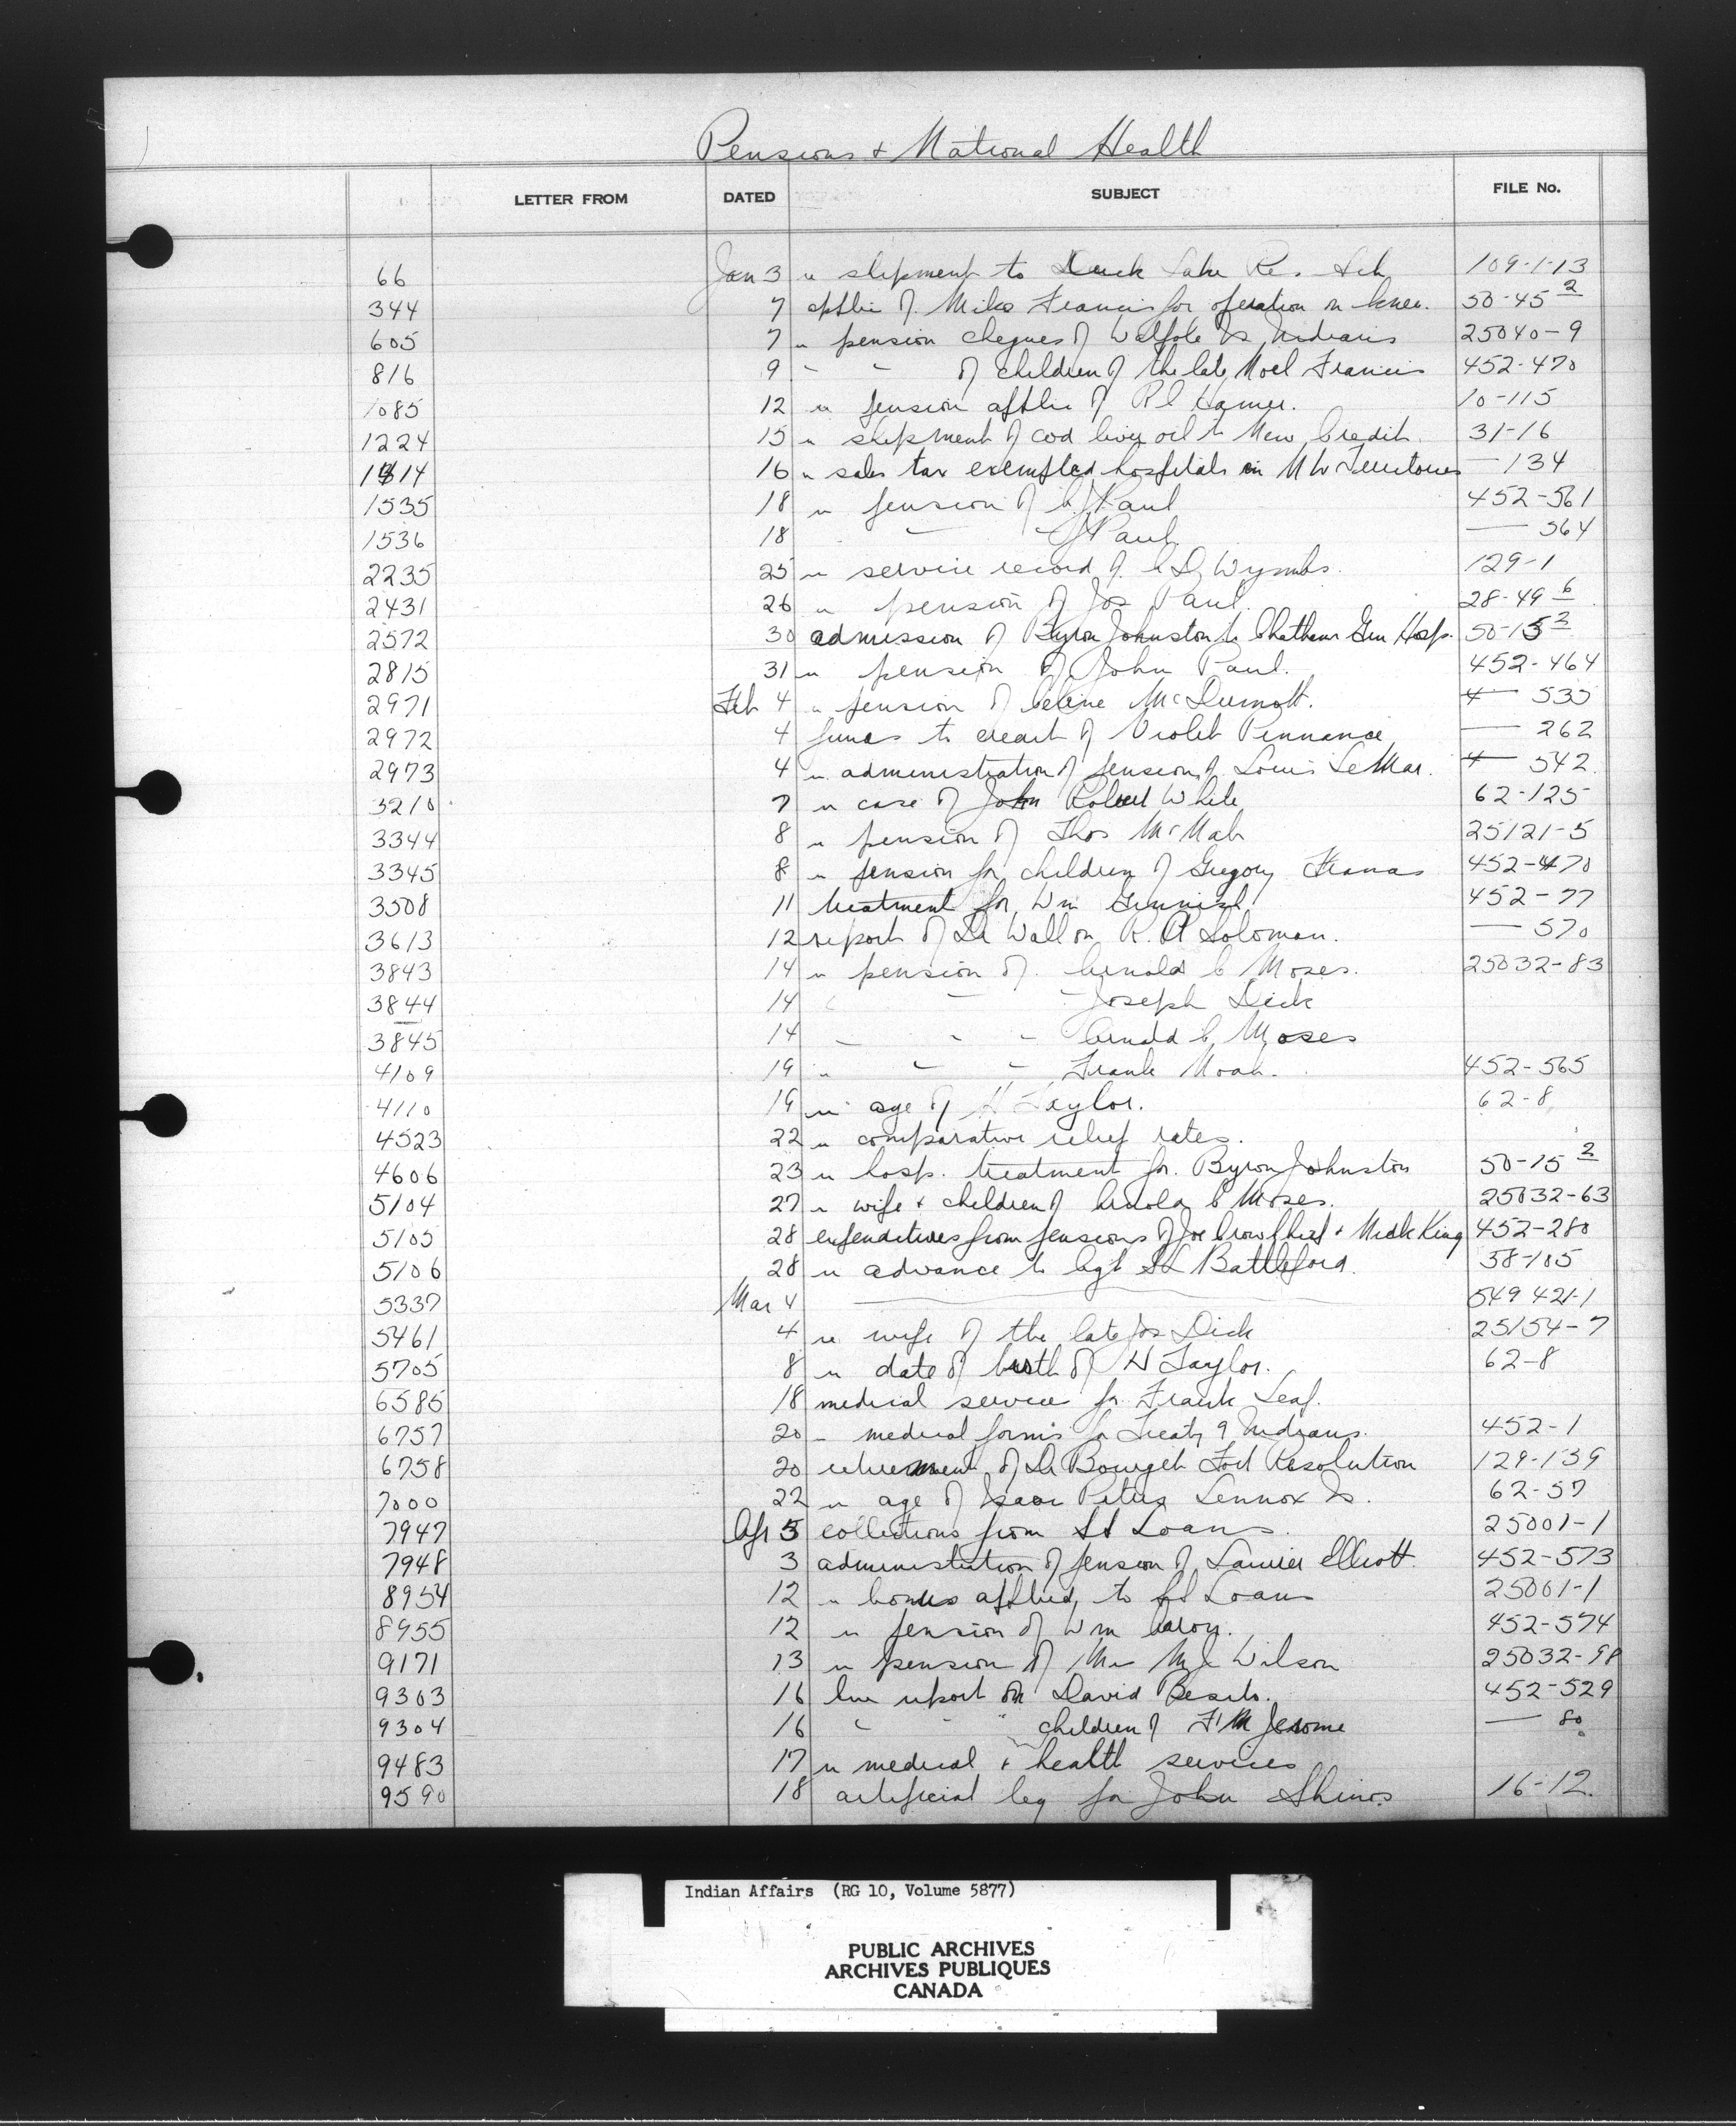 Pensions & National Health
LETTER FROM DATED SUBJECT FILE No.
66 Jan 3 re shipment to Duck Lake Re. Sch 109-1-13
344 7 applic of Mike Francis for operation on knee. 50-45 2
605 7 re pension cheques of Walpole Is Indians 25040-9
816 9 " " of children of the late Noel Francis 452-470
1085 12 re pension applic of R Hamer. 10-115
1224 15 re shipment of cod liver oil to New Credit. 31-16
1314 16 re sales tax exempted hospitals in N W Territories — 134
1535 18 re pension of Paul 452-561
1536 18 " Paul — 564
2235 25 re service record of C D Wymbs. 129-1
2431 26 re pension of Jos Paul. 28-49 6
2572 30 admission of Byron Johnston to Chatham Gen Hosp. 50-15 2
2815 31 re pension of John Paul. 452-464
2971 Feb 4 re pension of Celine McDermott. — 535
2972 4 funds to credit of Violet Pennance — 262
2973 4 re administration of pension of Louis LeMar. — 542
3210 7 re case of John Robert White 62-125
3344 8 re pension of Thos McNab 25121-5
3345 8 re pension for children of Gregory 452-470
3508 11 treatment for Wm 452-77
3613 12 report of Dr Wall on R. A Solomon. — 570
3843 14 re pension of Arnold C Moses. 25032-83
3844 14 " " " Joseph Dick
3845 14 " " " Arnold C Moses
4109 19 " " " Frank Noah. 452-565
4110 19 re age of H Taylor. 62-8
4523 22 re comparative relief rates.
4606 23 re hosp. treatment for Byron Johnston 50-15 2
5104 27 re wife & children of Arnold C Moses. 25032-63
5105 28 expenditures from pensions of Joe Crowchief & Mark King 452-280
5106 28 re advance to Agt Battleford. 58-105
5337 Mar 4 549 421-1
5461 4 re wife of the late Jos Dick 25154-7
5705 8 re date of birth of H Taylor. 62-8
6585 18 medical service for Frank Leaf.
6757 20 " medical forms for Treaty 9 Indians. 452-1
6758 20 retirement of Dr Bourget Fort Resolution 129-139
7000 22 re age of Isaac Peters Lennox Is. 62-57
7947 Apr 3 collections from Loans. 25001-1
7948 3 administration of pension of Laurier Elliott. 452-573
8954 12 re bonus applied to Loans 25001-1
8955 12 re pension of Wm 452-574
9171 13 re pension of Mrs M J Wilson 25032-98
9303 16 Inv report on David 452-529
9304 16 " " " children of F M Jerome — 80
9483 17 re medical & health services
9590 18 artificial leg for John 16-12.
Indian Affairs (RG 10, Volume 5877)
PUBLIC ARCHIVES
ARCHIVES PUBLIQUES
CANADA